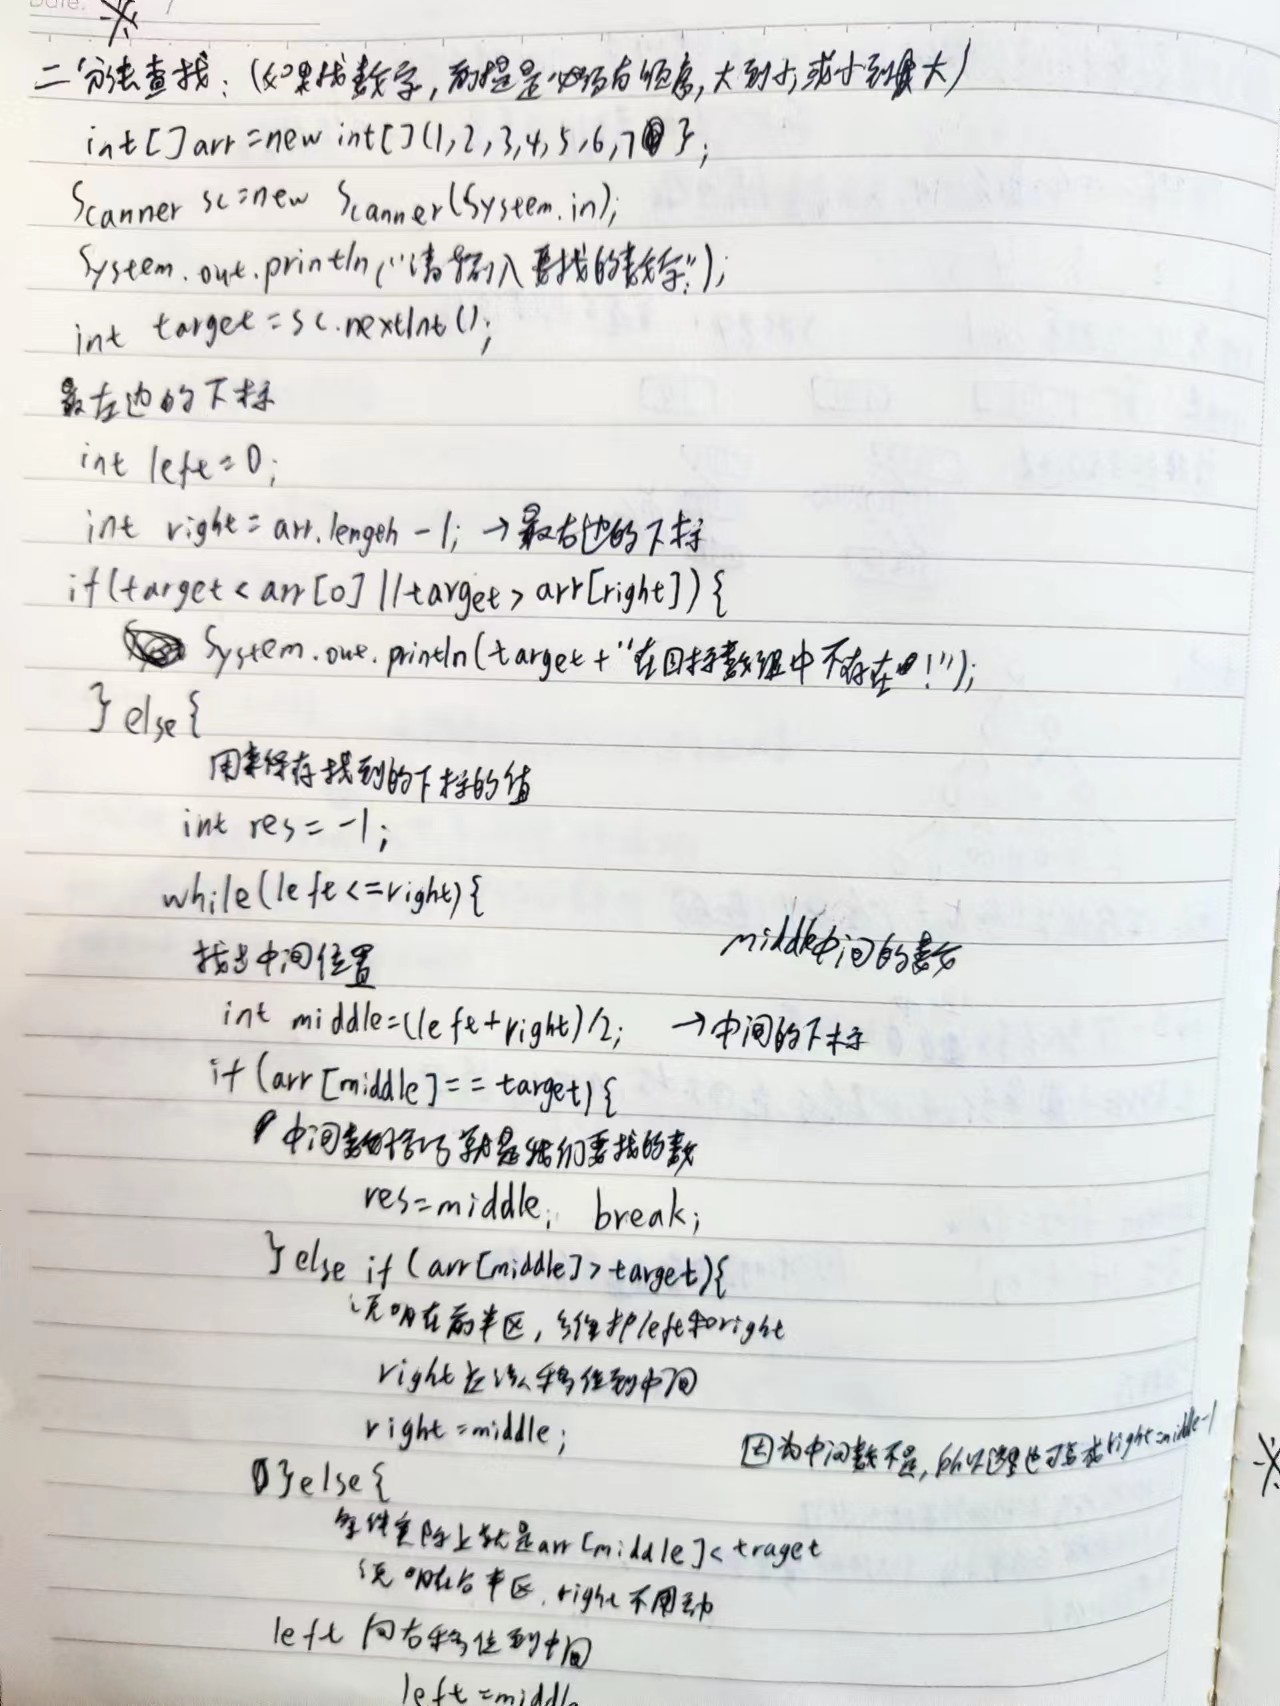 Date:
※
二分法查找:(如果找数字,前提是必须有顺序,大到小或小到大)
int[]arr=new int[](1,2,3,4,5,6,7};
Scanner sc=new Scanner(System.in);
System.out.println("请输入要找的数字:");
int target=sc.nextInt();
最左边的下标
int left=0;
int right=arr.length-1; →最右边的下标
if(target<arr[0]||target>arr[right]){
System.out.println(target+"在目标数组中不存在!");
}else{
用来保存找到的下标的值
int res=-1;
while(left<=right){
找出中间位置 middle中间的数
int middle=(left+right)/2; →中间的下标
if(arr[middle]==target){
中间数 就是我们要找的数
res=middle; break;
}else if(arr[middle]>target){
说明在前半区,维护left和right
right应该移位到中间
right=middle; 因为中间数不是,所以这里也可写成right=middle-1
※
}else{
条件实际上就是arr[middle]<traget
说明在右半区,right不用动
left向右移位到中间
left=middle